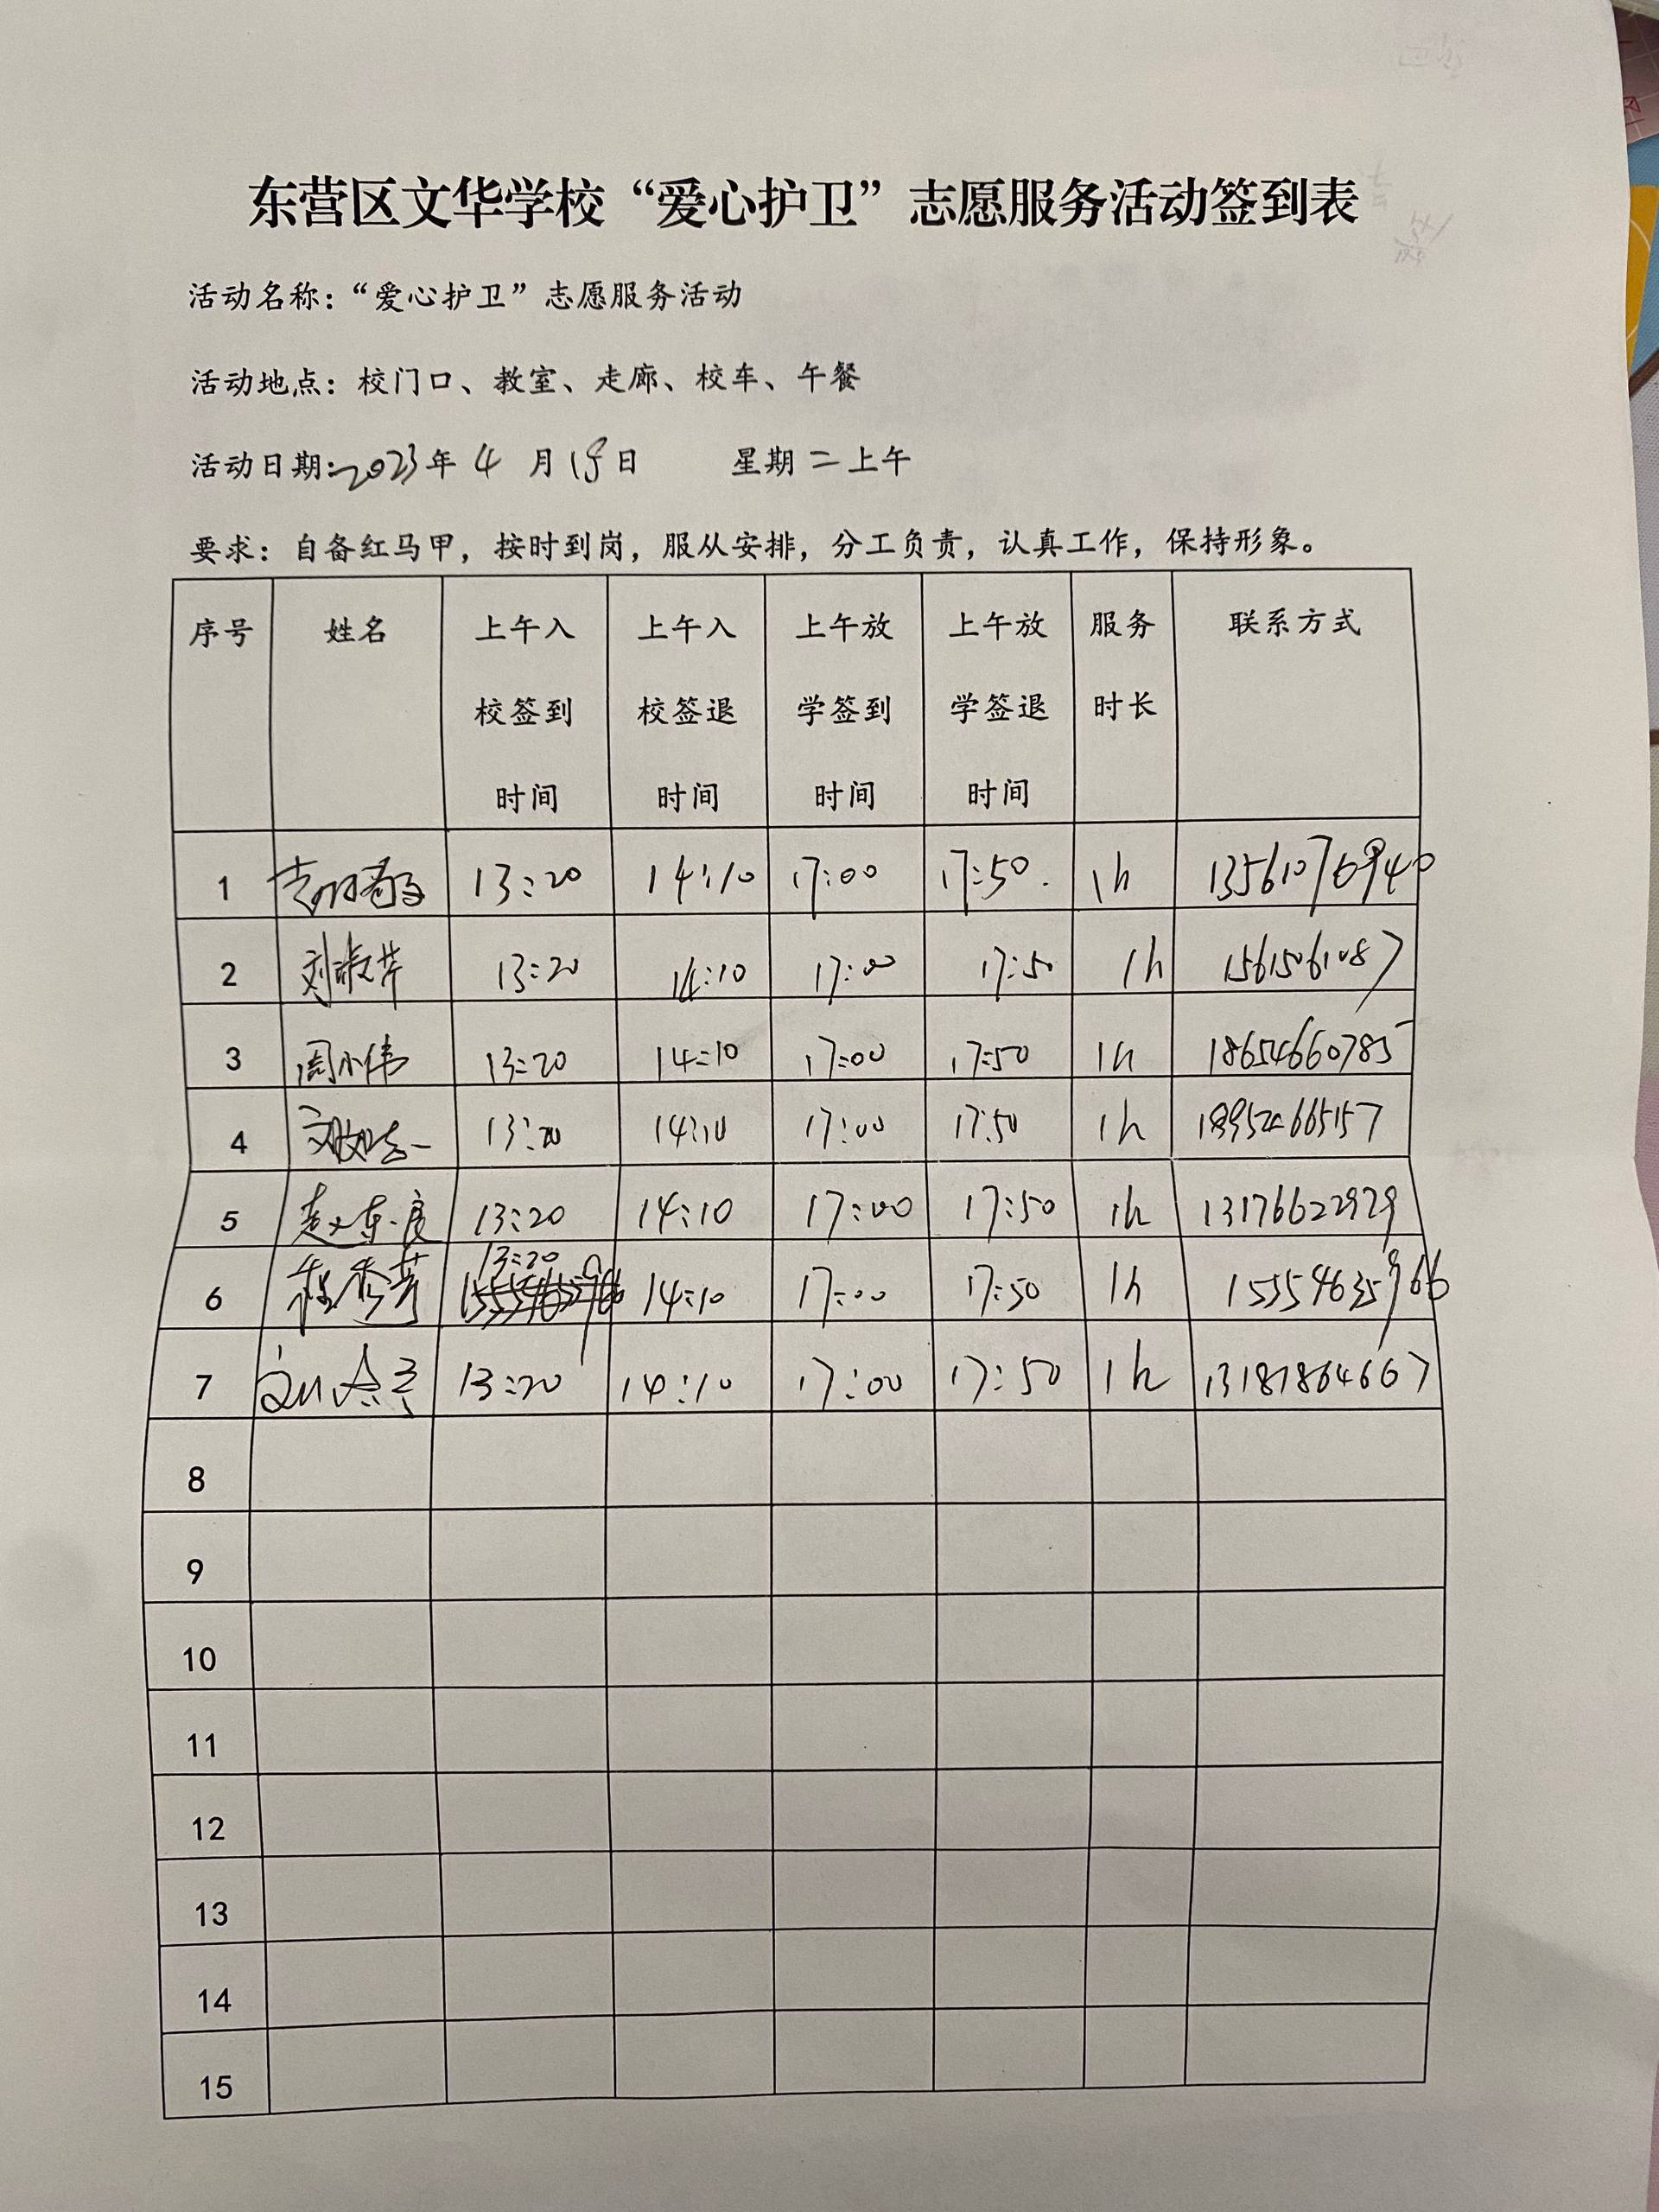 东营区文华学校“爱心护卫”志愿服务活动签到表
活动名称：“爱心护卫”志愿服务活动
活动地点：校门口、教室、走廊、校车、午餐
活动日期：2023年 4 月 18日 星期二上午
要求：自备红马甲，按时到岗，服从安排，分工负责，认真工作，保持形象。
序号 姓名 上午入校签到时间 上午入校签退时间 上午放学签到时间 上午放学签退时间 服务时长 联系方式
1 13:20 14:10 17:00 17:50. 1h 13561076940
2 刘淑芹 13:20 14:10 17:00 17:50 1h 15615061087
3 周小伟 13:20 14:10 17:00 17:50 1h 18654660785
4 13:20 14:10 17:00 17:50 1h
5 13:20 14:10 17:00 17:50 1h 13176622929
6 程秀芳 13:20 14:10 17:00 17:50 1h 15554635966
7 13:20 14:10 17:00 17:50 1h 13181864667
8
9
10
11
12
13
14
15